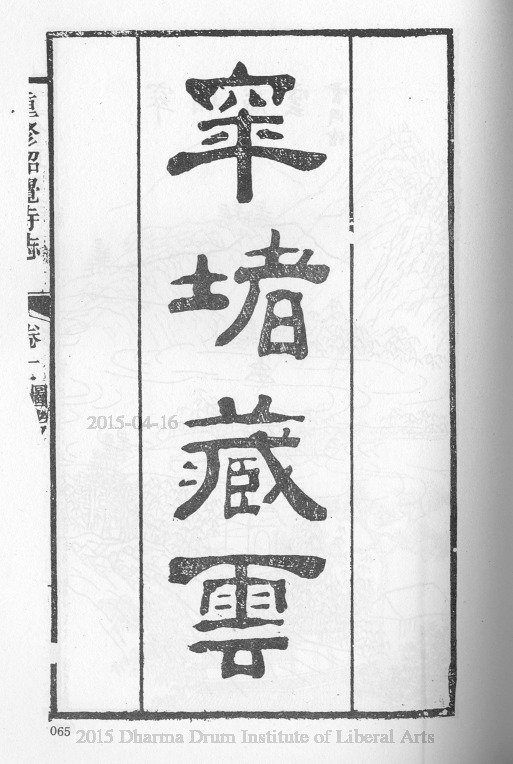 窣堵藏雲
重修昭覺寺志
卷一
圖
2015-04-16
065
2015 Dharma Drum Institute of Liberal Arts